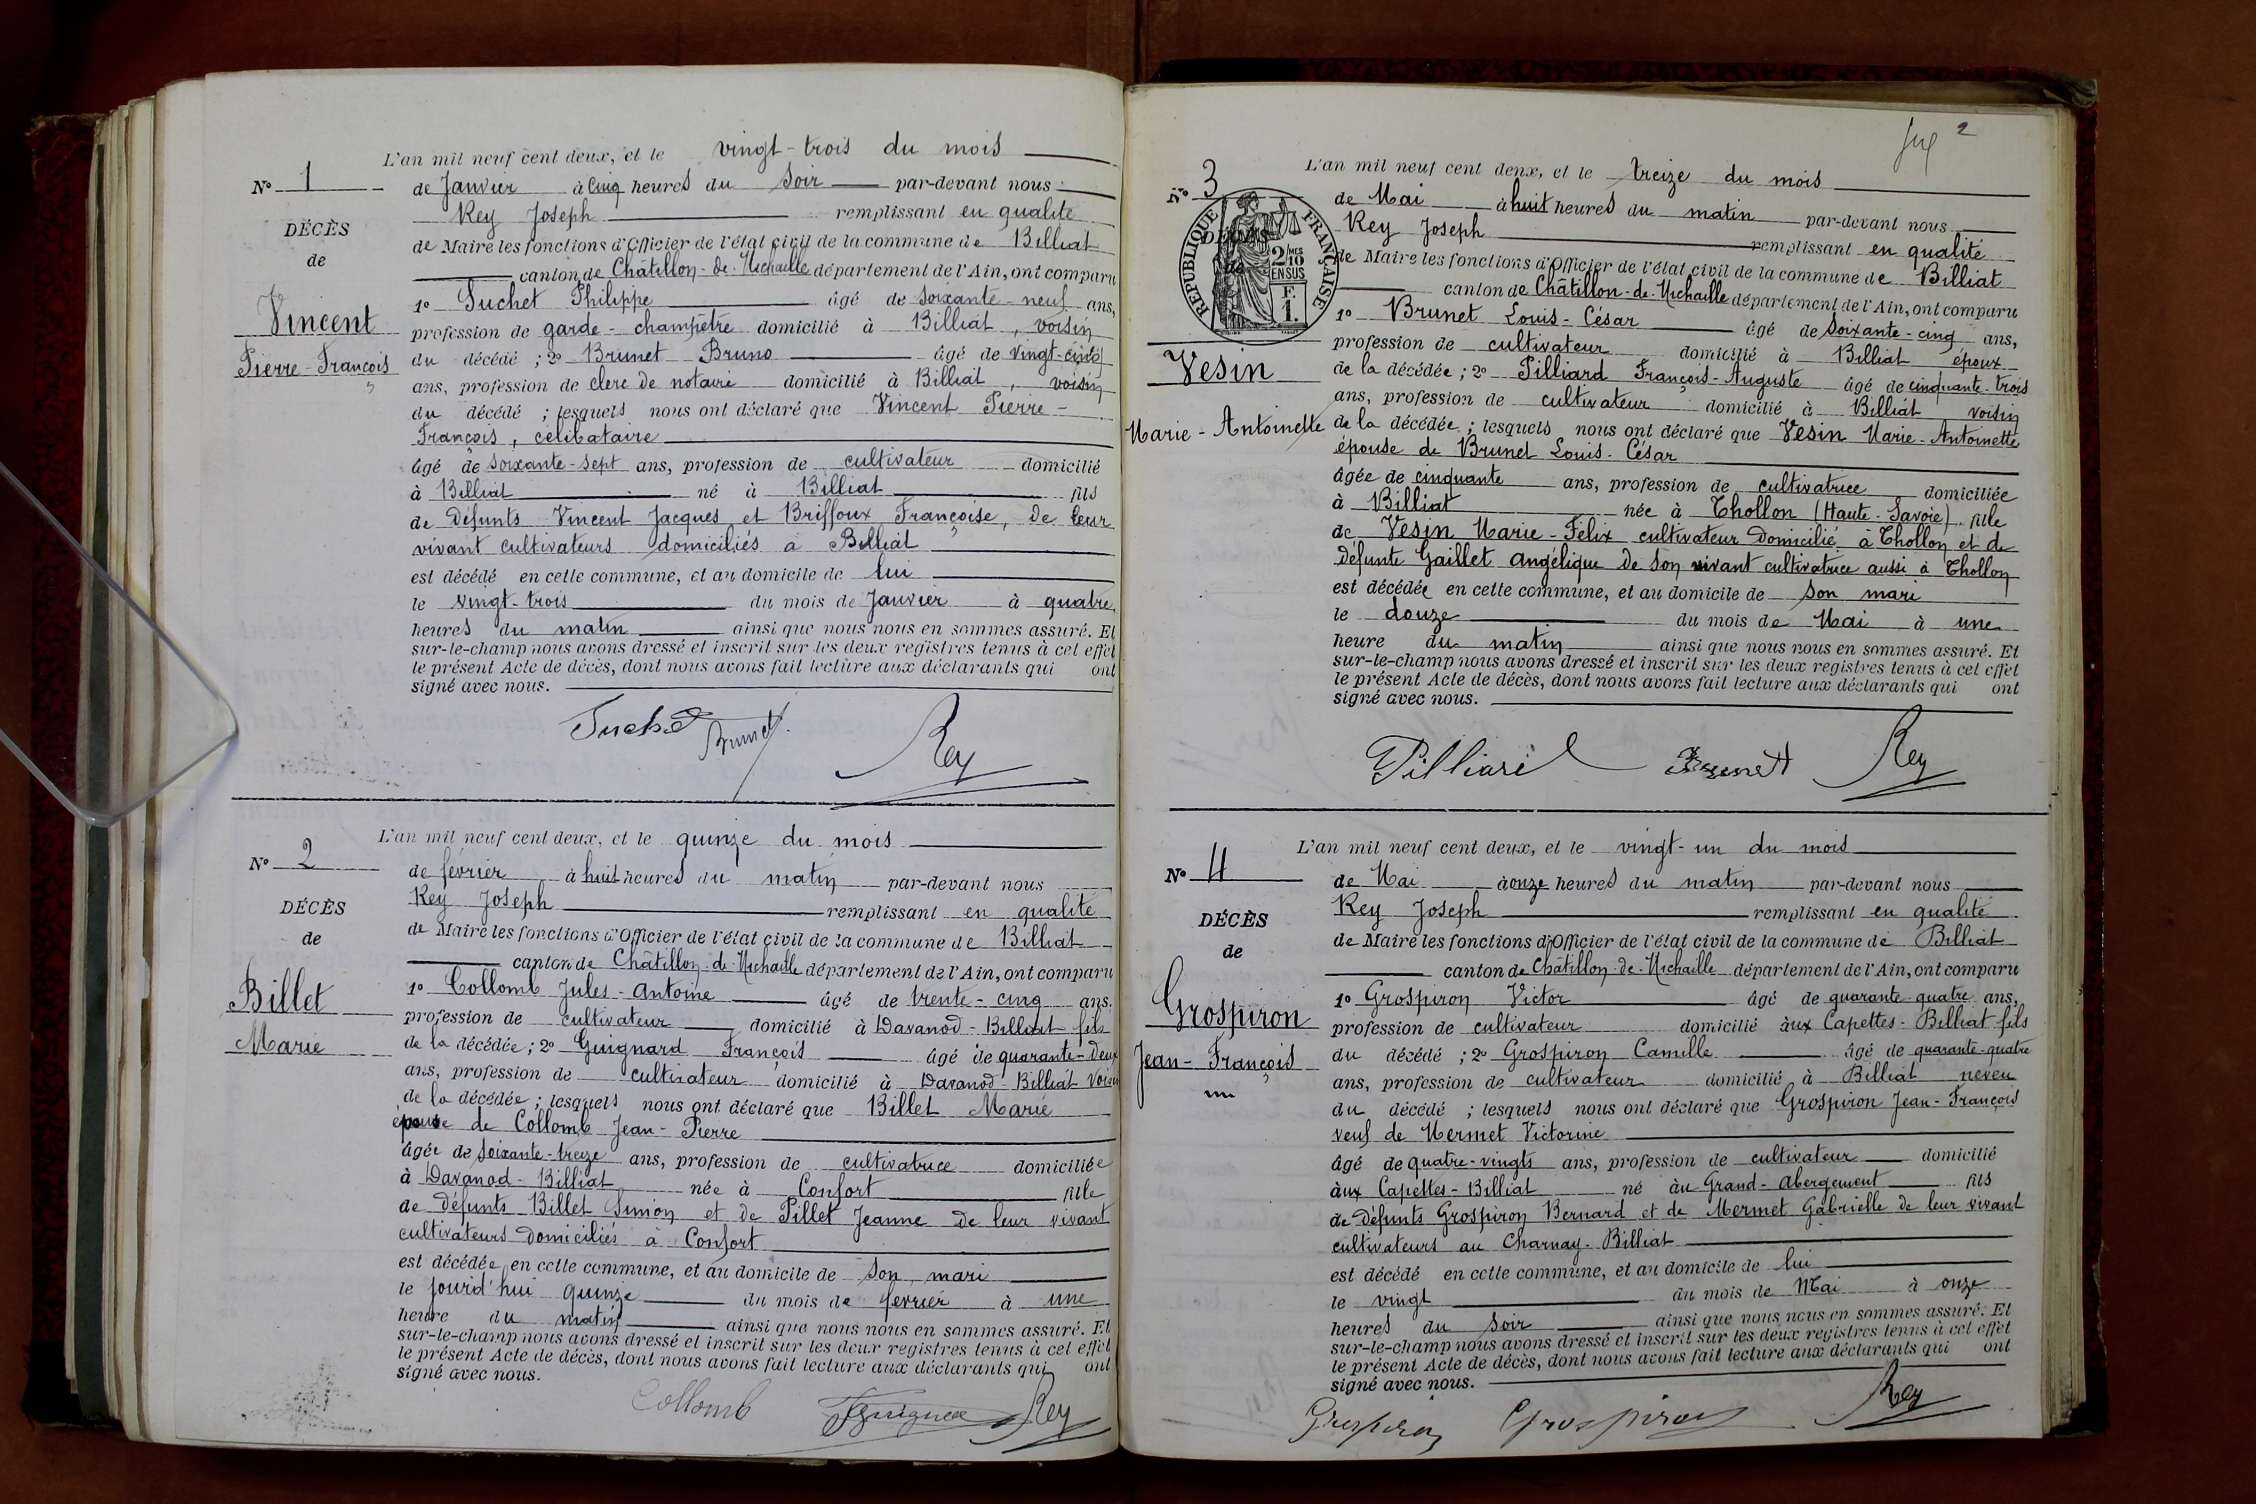 L'an mil neuf cent deux, et le vingt-trois du mois
N° 1
de Janvier à cinq heures du soir par-devant nous
Rey Joseph remplissant en qualité
DÉCÈS
de
de Maire les fonctions d'Officier de l'état civil de la commune de Billiat
canton de Châtillon-de-Michaille département de l'Ain, ont comparu
1° Suchet Philippe âgé de soixante-neuf ans,
Vincent
Pierre-François
profession de garde-champêtre domicilié à Billiat, voisin
du décédé ; 2° Brunet Bruno âgé de vingt-cinq
ans, profession de clerc de notaire domicilié à Billiat, voisin
du décédé ; lesquels nous ont déclaré que Vincent Pierre-
François, célibataire
âgé de soixante-sept ans, profession de cultivateur domicilié
à Billiat né à Billiat fils
de défunts Vincent Jacques et Briffoux Françoise, de leur
vivant cultivateurs domiciliés à Billiat
est décédé en cette commune, et au domicile de lui
le vingt-trois du mois de Janvier à quatre
heures du matin ainsi que nous nous en sommes assuré. Et
sur-le-champ nous avons dressé et inscrit sur les deux registres tenus à cet effet
le présent Acte de décès, dont nous avons fait lecture aux déclarants qui ont
signé avec nous.
Suchet Brunet Rey
L'an mil neuf cent deux, et le quinze du mois
N° 2
de février à huit heures du matin par-devant nous
Rey Joseph remplissant en qualité
DÉCÈS
de
de Maire les fonctions d'Officier de l'état civil de la commune de Billiat
canton de Châtillon-de-Michaille département de l'Ain, ont comparu
1° Collomb Jules-Antoine âgé de trente-cinq ans,
Billet
Marie
profession de cultivateur domicilié à Davanod-Billiat fils
de la décédée ; 2° Guignard François âgé de quarante-deux
ans, profession de cultivateur domicilié à Davanod-Billiat voisin
de la décédée ; lesquels nous ont déclaré que Billet Marie
épouse de Collomb Jean-Pierre
âgée de soixante-treize ans, profession de cultivatrice domiciliée
à Davanod-Billiat née à Confort fille
de défunts Billet Simon et de Pillet Jeanne de leur vivant
cultivateurs domiciliés à Confort
est décédée en cette commune, et au domicile de son mari
le jourd'hui quinze du mois de février à une
heure du matin ainsi que nous nous en sommes assuré. Et
sur-le-champ nous avons dressé et inscrit sur les deux registres tenus à cet effet
le présent Acte de décès, dont nous avons fait lecture aux déclarants qui ont
signé avec nous.
Collomb Rey
2
L'an mil neuf cent deux, et le treize du mois
N° 3
de Mai à huit heures du matin par-devant nous
Rey Joseph remplissant en qualité
DÉCÈS
de
RÉPUBLIQUE FRANÇAISE
2/10 MES
EN SUS
F.
1.
de Maire les fonctions d'Officier de l'état civil de la commune de Billiat
canton de Châtillon-de-Michaille département de l'Ain, ont comparu
1° Brunet Louis-César âgé de soixante-cinq ans,
Vesin
Marie-Antoinette
profession de cultivateur domicilié à Billiat époux
de la décédée ; 2° Pilliard François-Auguste âgé de cinquante-trois
ans, profession de cultivateur domicilié à Billiat voisin
de la décédée ; lesquels nous ont déclaré que Vesin Marie-Antoinette
épouse de Brunet Louis-César
âgée de cinquante ans, profession de cultivatrice domiciliée
à Billiat née à Thollon (Haute-Savoie) fille
de Vesin Marie-Félix cultivateur domicilié à Thollon et de
défunte Gaillet Angélique de son vivant cultivatrice aussi à Thollon
est décédée en cette commune, et au domicile de son mari
le douze du mois de Mai à une
heure du matin ainsi que nous nous en sommes assuré. Et
sur-le-champ nous avons dressé et inscrit sur les deux registres tenus à cet effet
le présent Acte de décès, dont nous avons fait lecture aux déclarants qui ont
signé avec nous.
Pilliard Brunet Rey
L'an mil neuf cent deux, et le vingt-un du mois
N° 4
de Mai à onze heures du matin par-devant nous
Rey Joseph remplissant en qualité
DÉCÈS
de
de Maire les fonctions d'Officier de l'état civil de la commune de Billiat
canton de Châtillon-de-Michaille département de l'Ain, ont comparu
1° Grospiron Victor âgé de quarante-quatre ans,
Grospiron
Jean-François
profession de cultivateur domicilié aux Capettes-Billiat fils
du décédé ; 2° Grospiron Camille âgé de quarante-quatre
ans, profession de cultivateur domicilié à Billiat neveu
du décédé ; lesquels nous ont déclaré que Grospiron Jean-François
veuf de Mermet Victorine
âgé de quatre-vingts ans, profession de cultivateur domicilié
aux Capettes-Billiat né au Grand-Abergement fils
de défunts Grospiron Bernard et de Mermet Gabrielle de leur vivant
cultivateurs au Charnay-Billiat
est décédé en cette commune, et au domicile de lui
le vingt du mois de Mai à onze
heures du soir ainsi que nous nous en sommes assuré. Et
sur-le-champ nous avons dressé et inscrit sur les deux registres tenus à cet effet
le présent Acte de décès, dont nous avons fait lecture aux déclarants qui ont
signé avec nous.
Grospiron Grospiron Rey